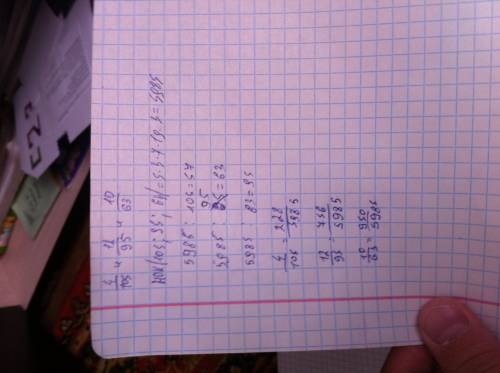 4/105 и 12/95 и 10/63
НОК(105; 95; 63)=5·3·7·19·3=5985
5985:105=57
5985:95=63
5985:63=95
4/105=228/5985
12/95=756/5985
10/63=950/5985